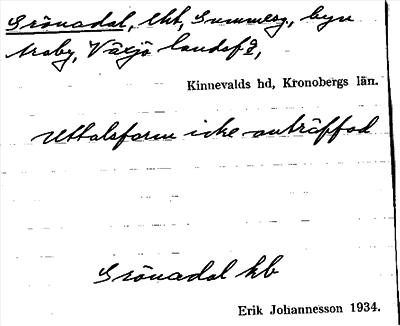 Grönadal, lht, Gummesg., byn
Araby, Växjö landsf,
Kinnevalds hd, Kronobergs län.
Uttalsform icke anträffad
Grönadal kb
Erik Johannesson 1934.